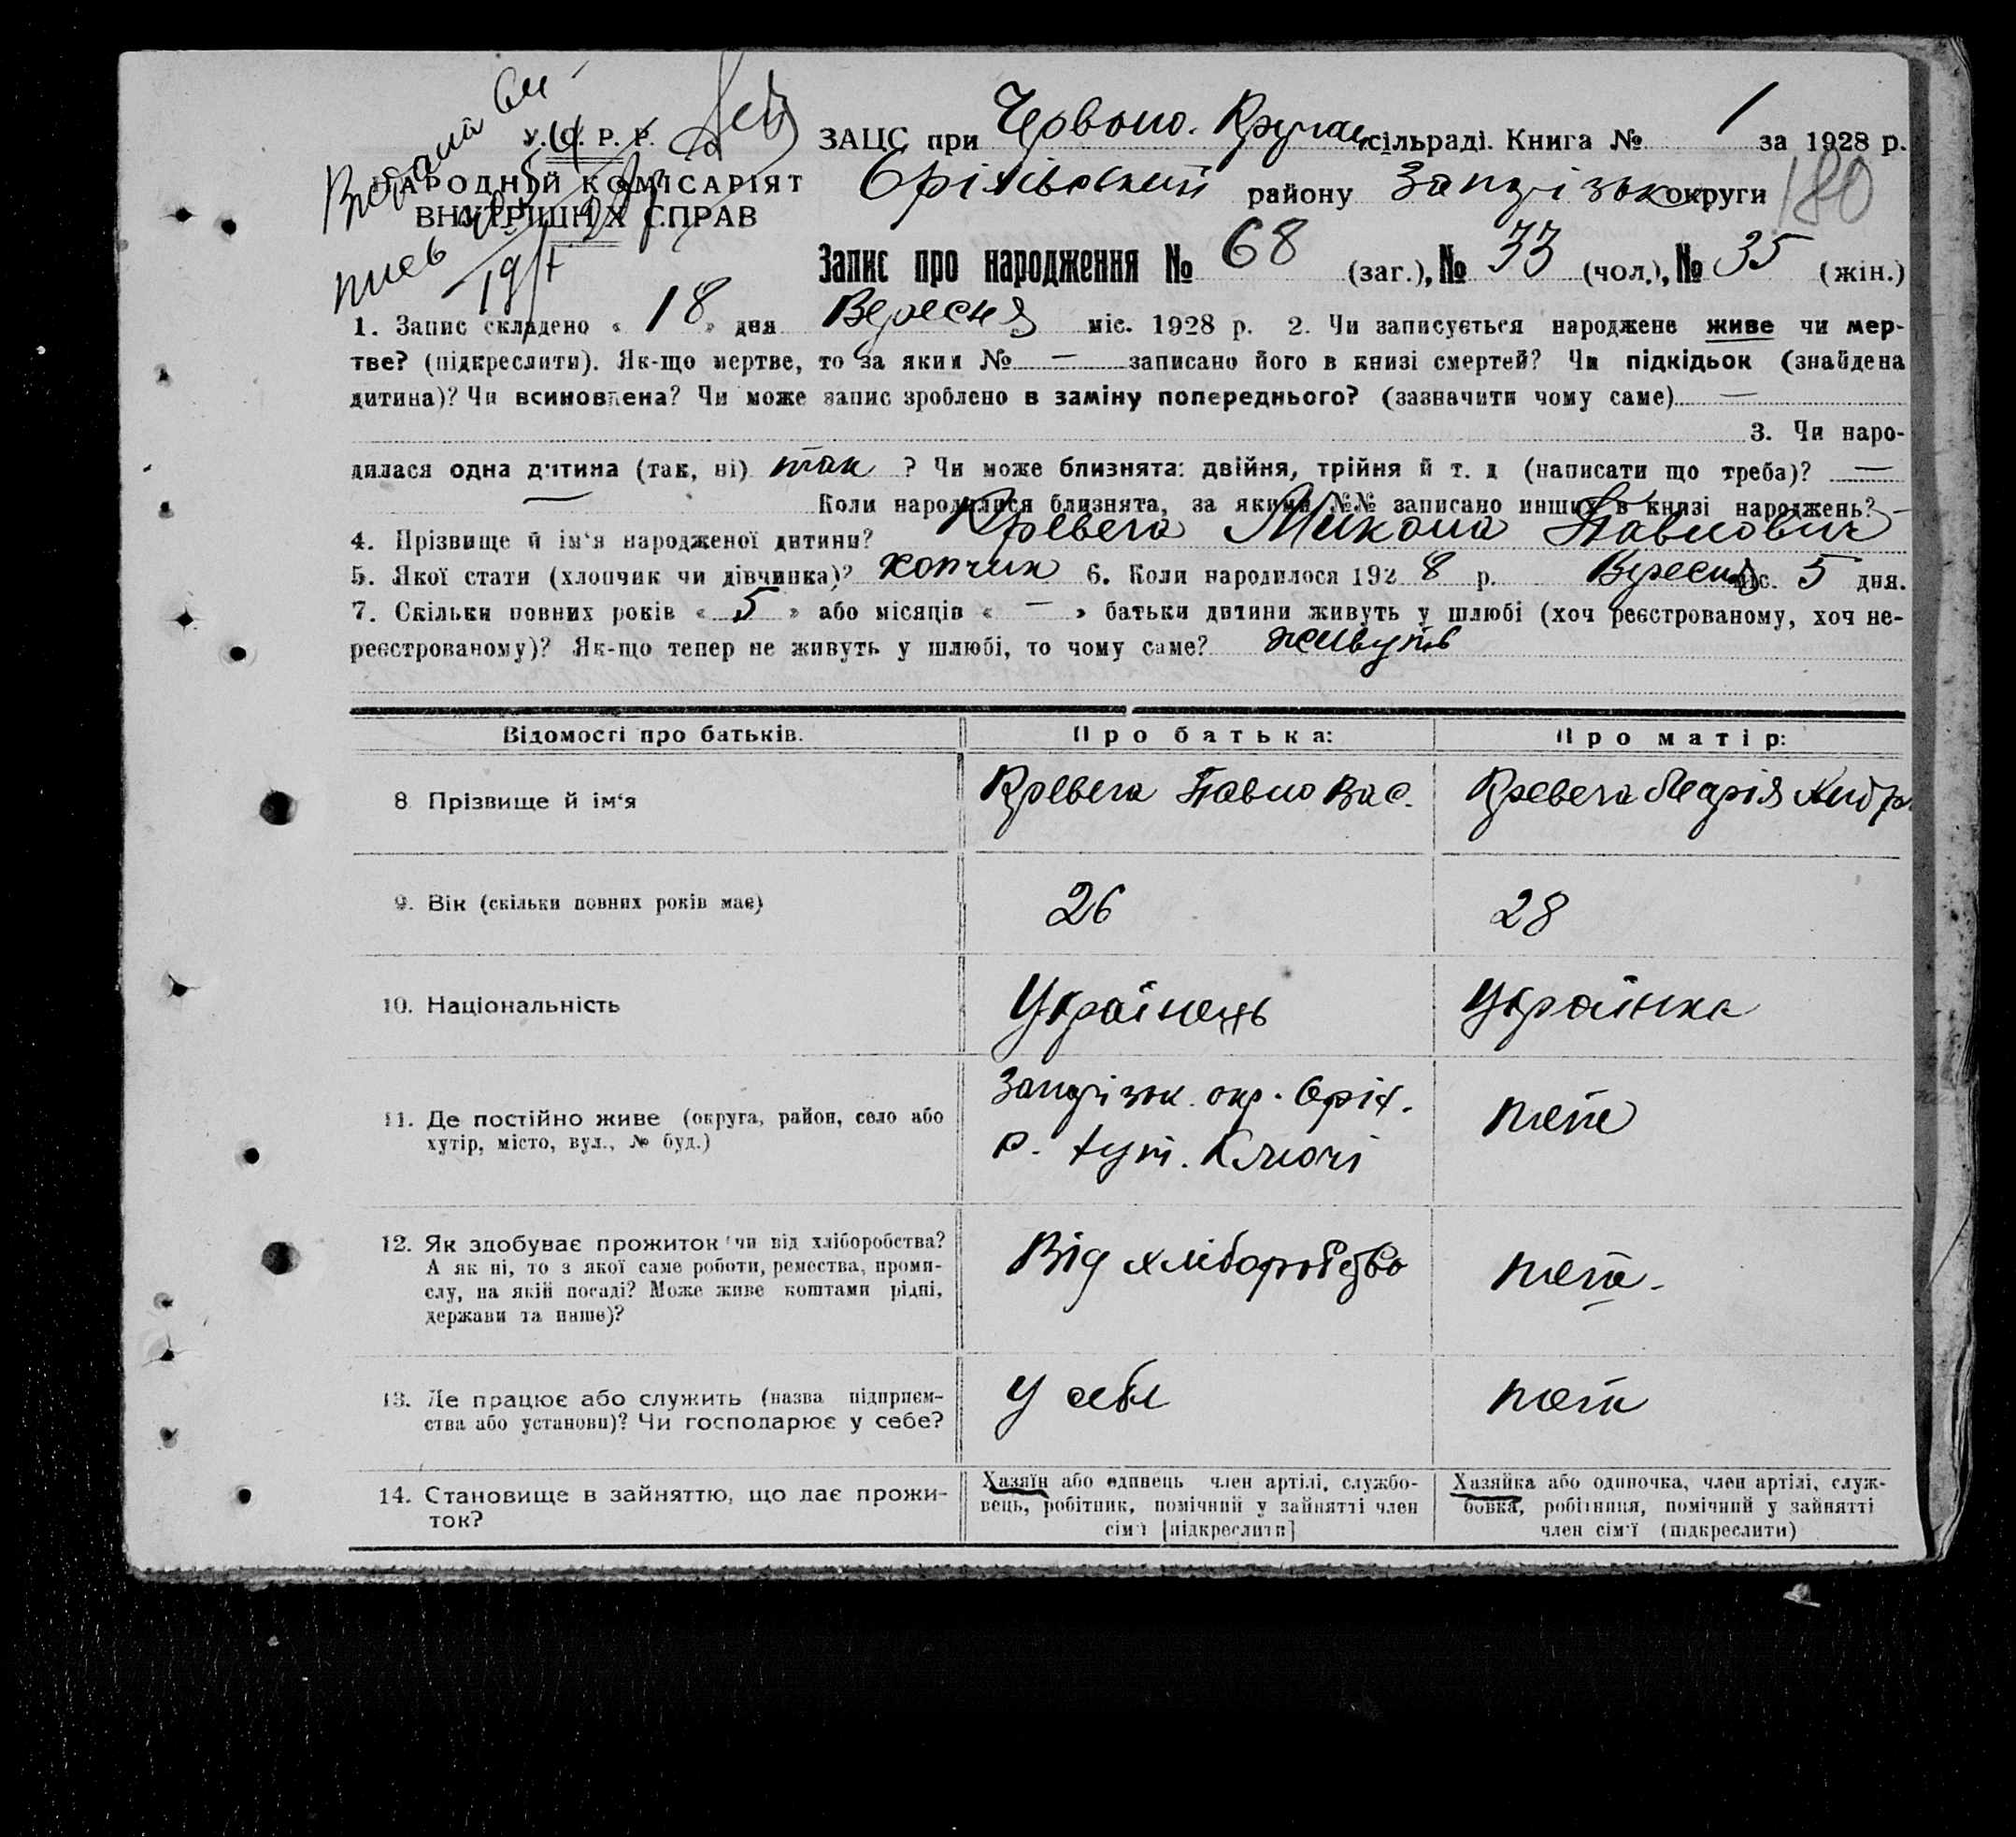 У.С.Р.Р.
НАРОДНІЙ КОМІСАРІЯТ
ВНУТРІШНІХ СПРАВ
ЗАЦС при Червоно. сільраді. Книга № 1 за 1928 р.
Оріхівський району Запорізьк округи
180
Запис про народження № 68 (заг.), № 33 (чол.), № 35 (жін.)
1. Запис складено « 18 » дня Вересня міс. 1928 р. 2. Чи записується народжене живе чи мер-
тве? (підкреслити). Як-що мертве, то за яким № — записано його в книзі смертей? Чи підкідьок (знайдена
дитина)? Чи всиновлена? Чи може запис зроблено в заміну попереднього? (зазначити чому саме) —
3. Чи наро-
дилася одна дитина (так, ні) так ? Чи може близнята: двійня, трійня й т. д (написати що треба)? —
— Коли народилися близнята, за якими №№ записано инших в книзі народжень? —
4. Прізвище й ім'я народженої дитини? Кревега Микола Павлович
5. Якої стати (хлопчик чи дівчинка)? хопчик 6. Коли народилося 192 8 р. Вересня міс. 5 дня.
7. Скільки повних років « 5 » або місяців « — » батьки дитини живуть у шлюбі (хоч реєстрованому, хоч не-
реєстрованому)? Як-що тепер не живуть у шлюбі, то чому саме? живуть
Відомості про батьків.
Про батька:
Про матір:
8 Прізвище й ім'я
Кревега Павло Вас.
Кревега Марія Андр.
9. Вік (скільки повних років має)
26
28
10. Національність
Українець
Українка
11. Де постійно живе (округа, район, село або
хутір, місто, вул., № буд.)
Запорізьк. окр. Оріх.
р. хут. Ключі
теж
12. Як здобуває прожиток чи від хліборобства?
А як ні, то з якої саме роботи, ремества, проми-
слу, на якій посаді? Може живе коштами рідні,
держави та инше)?
Від хліборобства
13. Де працює або служить (назва підприєм-
ства або установи)? Чи господарює у себе?
У себе
14. Становище в зайняттю, що дає прожи-
ток?
Хазяїн або одинець член артілі, службо-
вець, робітник, помічний у зайнятті член
сім'ї [підкреслити]
Хазяйка або одиночка, член артілі, служ-
бовка, робітниця, помічний у зайнятті
член сім'ї (підкреслити)